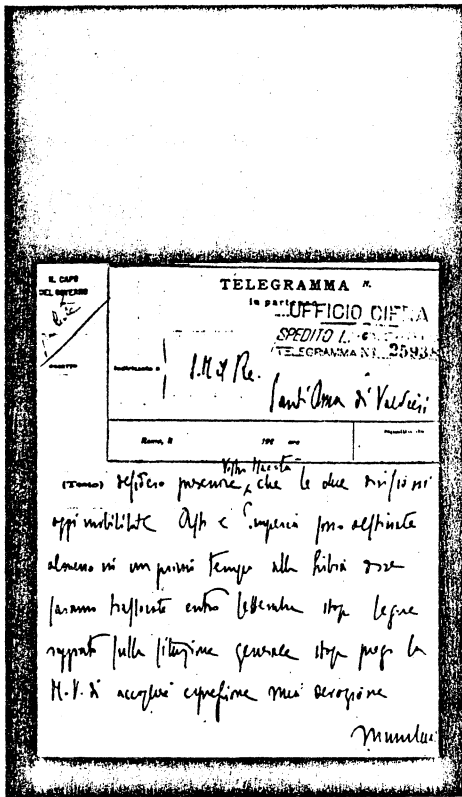 IL CAPO
DEL GOVERNO
TELEGRAMMA N.
in partenza
UFFICIO CIFRA
SPEDITO
TELEGRAMMA N. 2593
S. M. il Re.
Sant'Anna di Valdieri
Roma, li 193 ore
Vostra Maestà
desidero prevenire che le due divisioni
oggi mobilitate e siano destinate
almeno in un primo tempo alla Libia dove
saranno trasportate entro settembre stop segue
rapporto sulla situazione generale stop prego la
M.V. di accogliere espressione mia devozione
Mussolini